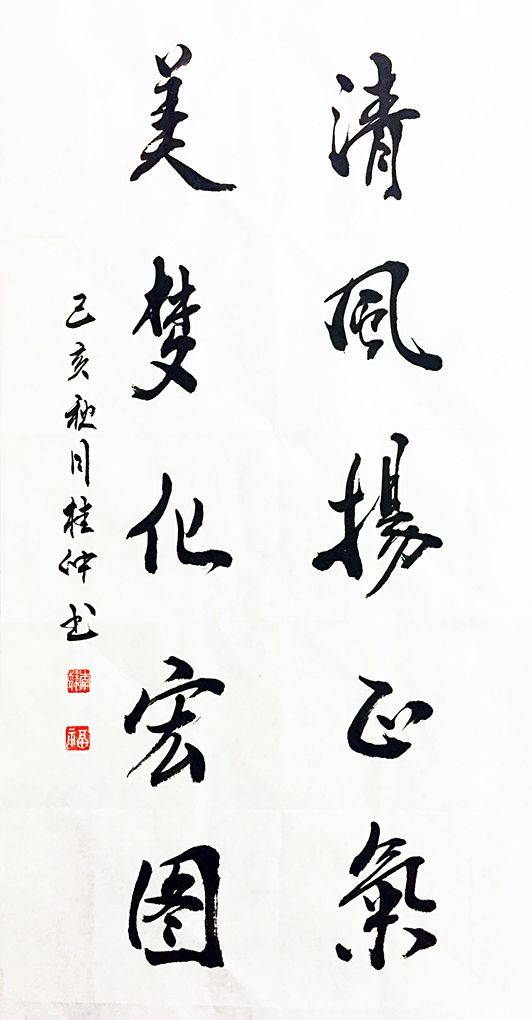 清風揚正氣
美梦化宏图
己亥秋月桂仲书